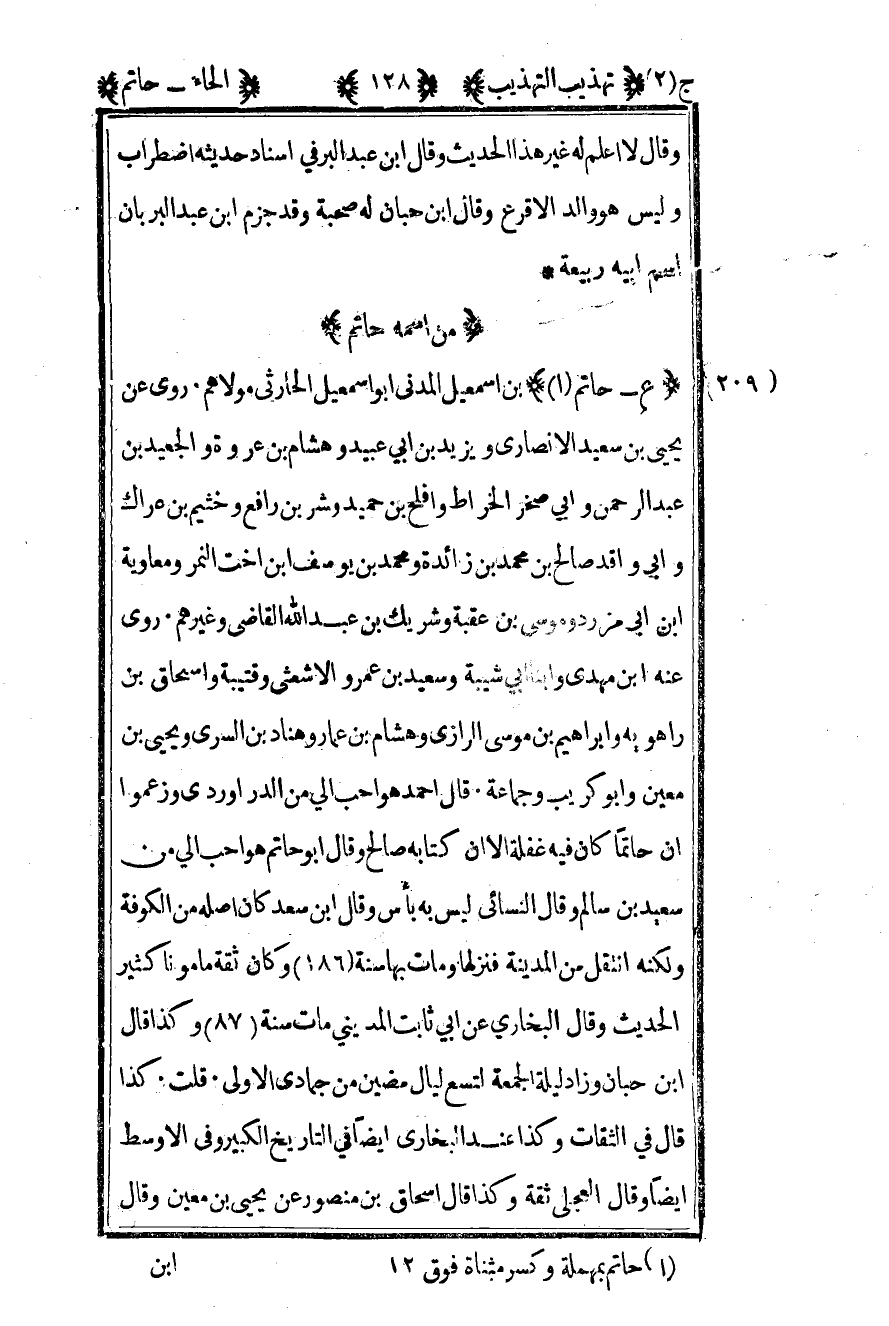 ج (٢) ﴿ تهذيب التهذيب ﴾ ﴿ ١٢٨ ﴾ ﴿ الحاء ـ حاتم ﴾
وقال لا اعلم له غير هذا الحديث وقال ابن عبد البر في اسناد حديثه اضطراب
و ليس هو والد الاقرع وقال ابن حبان له صحبة وقد جزم ابن عبد البر بان
اسم ابيه ربيعة *
﴿ من اسمه حاتم ﴾
(٢٠٩) ﴿ ع ـ حاتم (١) ﴾ بن اسمعيل المدنى ابو اسمعيل الحارثى مولاهم ٠ روى عن
يحيى بن سعيد الانصارى و يزيد بن ابي عبيد و هشام بن عروة و الجعيد بن
عبد الرحمن و ابي صخر الخراط و افلح بن حميد و بشر بن رافع و خثيم بن عراك
و ابي واقد صالح بن محمد بن زائدة و محمد بن يوسف ابن اخت النمر ومعاوية
ابن ابي مزرد وموسى بن عقبة وشريك بن عبد الله القاضى وغيرهم ٠ روى
عنه ابن مهدى وابنا ابي شيبة وسعيد بن عمرو الاشعثى وقتيبة واسحاق بن
راهويه وابراهيم بن موسى الرازى وهشام بن عمار وهناد بن السرى ويحيى بن
معين وابو كريب وجماعة ٠ قال احمد هو احب الي من الدراوردى وزعموا
ان حاتمًا كان فيه غفلة الا ان كتابه صالح وقال ابو حاتم هو احب الي من
سعيد بن سالم وقال النسائى ليس به بأس وقال ابن سعد كان اصله من الكوفة
ولكنه انتقل من المدينة فنزلها ومات بها سنة (١٨٦) وكان ثقة مامونا كثير
الحديث وقال البخاري عن ابي ثابت المديني مات سنة (٨٧) و كذا قال
ابن حبان وزاد ليلة الجمعة لتسع ليال مضين من جمادى الاولى ٠ قلت ٠ كذا
قال في الثقات وكذا عند البخارى ايضًا في التاريخ الكبير وفى الاوسط
ايضًا وقال العجلى ثقة وكذا قال اسحاق بن منصور عن يحيى بن معين وقال
(١) حاتم بمهملة وكسر مثناة فوق ١٢
ابن